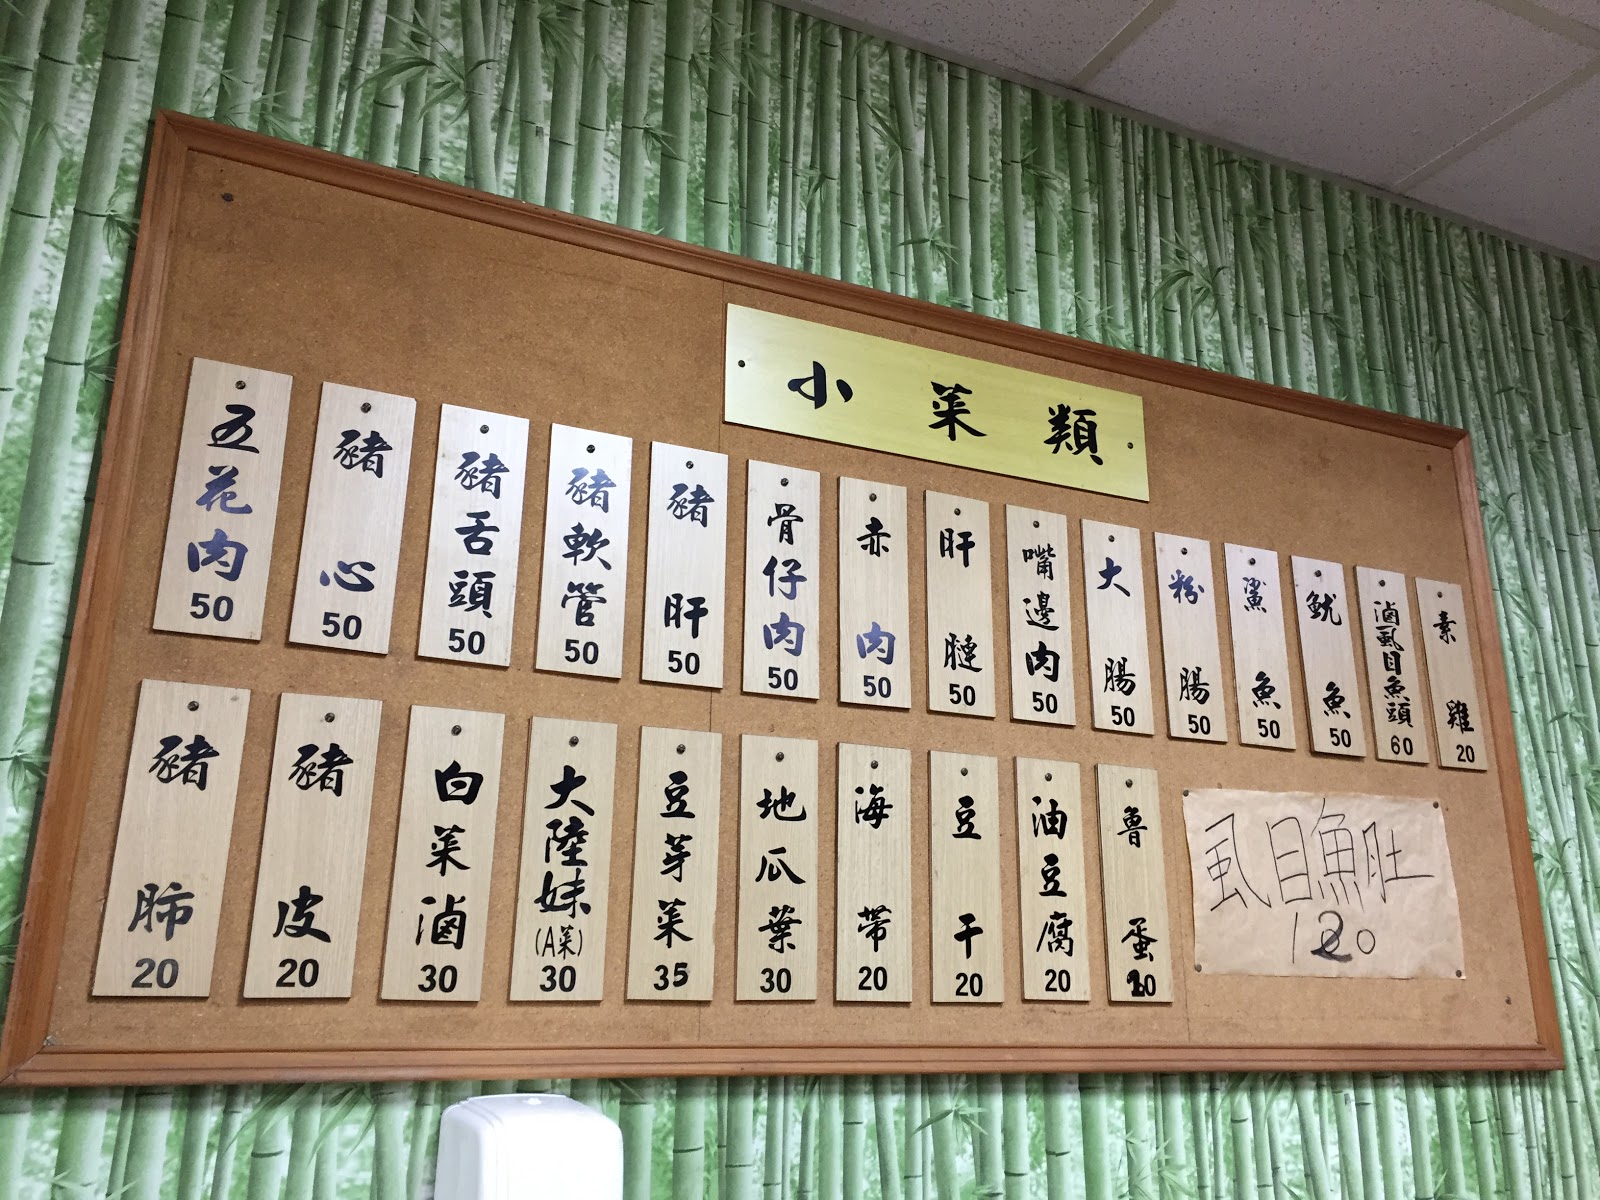 小菜類
五花肉 50
豬心 50
豬舌頭 50
豬軟管 50
豬肝 50
骨仔肉 50
赤肉 50
肝腱 50
嘴邊肉 50
大腸 50
粉腸 50
鯊魚 50
魷魚 50
滷虱目魚頭 60
素雞 20
豬肺 20
豬皮 20
白菜滷 30
大陸妹(A菜) 30
豆芽菜 35
地瓜葉 30
海帶 20
豆干 20
油豆腐 20
魯蛋
虱目魚肚
120